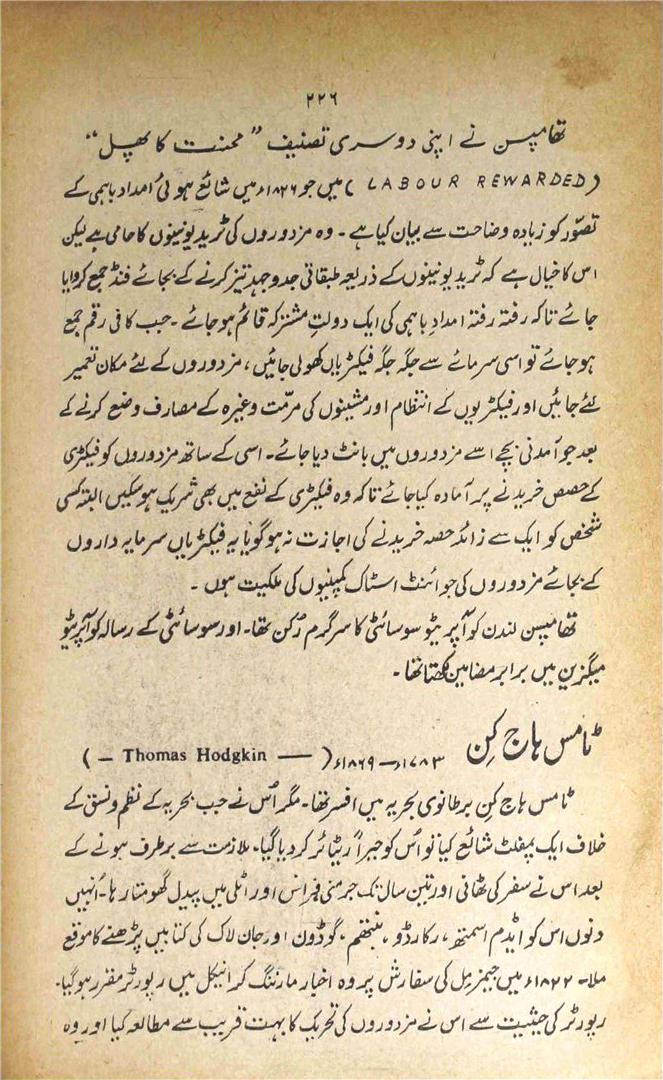 ۲۲۶
تھامپسن نے اپنی دوسری تصنیف ”محنت کا پھل“
(LABOUR REWARDED) میں جو ۱۸۲۶ء میں شائع ہوئی امداد باہمی کے
تصوّر کو زیادہ وضاحت سے بیان کیا ہے ۔ وہ مزدوروں کی ٹریڈ یونینوں کا حامی ہے لیکن
اس کا خیال ہے کہ ٹریڈ یونینوں کے ذریعہ طبقاتی جدوجہد تیز کرنے کے بجائے فنڈ جمع کروایا
جائے تاکہ رفتہ رفتہ امدادِ باہمی کی ایک دولتِ مشترکہ قائم ہو جائے ۔ جب کافی رقم جمع
ہو جائے تو اسی سرمائے سے جگہ جگہ فیکٹریاں کھولی جائیں ، مزدوروں کے لئے مکان تعمیر
کئے جائیں اور فیکٹریوں کے انتظام اور مشینوں کی مرمّت وغیرہ کے مصارف وضع کرنے کے
بعد جو آمدنی بچے اسے مزدوروں میں بانٹ دیا جائے ۔ اسی کے ساتھ مزدوروں کو فیکٹری
کے حصص خریدنے پر آمادہ کیا جائے تاکہ وہ فیکٹری کے نفع میں بھی شریک ہو سکیں البتہ کسی
شخص کو ایک سے زائد حصہ خریدنے کی اجازت نہ ہو گویا یہ فیکٹریاں سرمایہ داروں
کے بجائے مزدوروں کی جوائنٹ اسٹاک کمپنیوں کی ملکیت ہوں ۔
تھامپسن لندن کوآپریٹو سوسائٹی کا سرگرم رُکن تھا ۔ اور سوسائٹی کے رسالہ کوآپریٹو
میگزین میں برابر مضامین لکھتا تھا ۔
ٹامس ہاج کِن ۱۷۸۳ء — ۱۸۶۹ء (— Thomas Hodgkin —)
ٹامس ہاج کِن برطانوی بحریہ میں افسر تھا ۔ مگر اُس نے جب بحریہ کے نظم و نسق کے
خلاف ایک پمفلٹ شائع کیا تو اُس کو جبراً ریٹائر کر دیا گیا ۔ ملازمت سے برطرف ہونے کے
بعد اس نے سفر کی ٹھانی اور تین سال تک جرمنی فرانس اور اٹلی میں پیدل گھومتا رہا ۔ اُنہیں
دنوں اس کو ایڈم اسمتھ ، رکارڈو ، بینتھم ، گوڈون اور جان لاک کی کتابیں پڑھنے کا موقع
ملا ۔ ۱۸۲۲ء میں جیمز مِل کی سفارش پر وہ اخبار مارننگ کرانیکل میں رپورٹر مقرر ہو گیا ۔
رپورٹر کی حیثیت سے اس نے مزدوروں کی تحریک کا بہت قریب سے مطالعہ کیا اور وہ